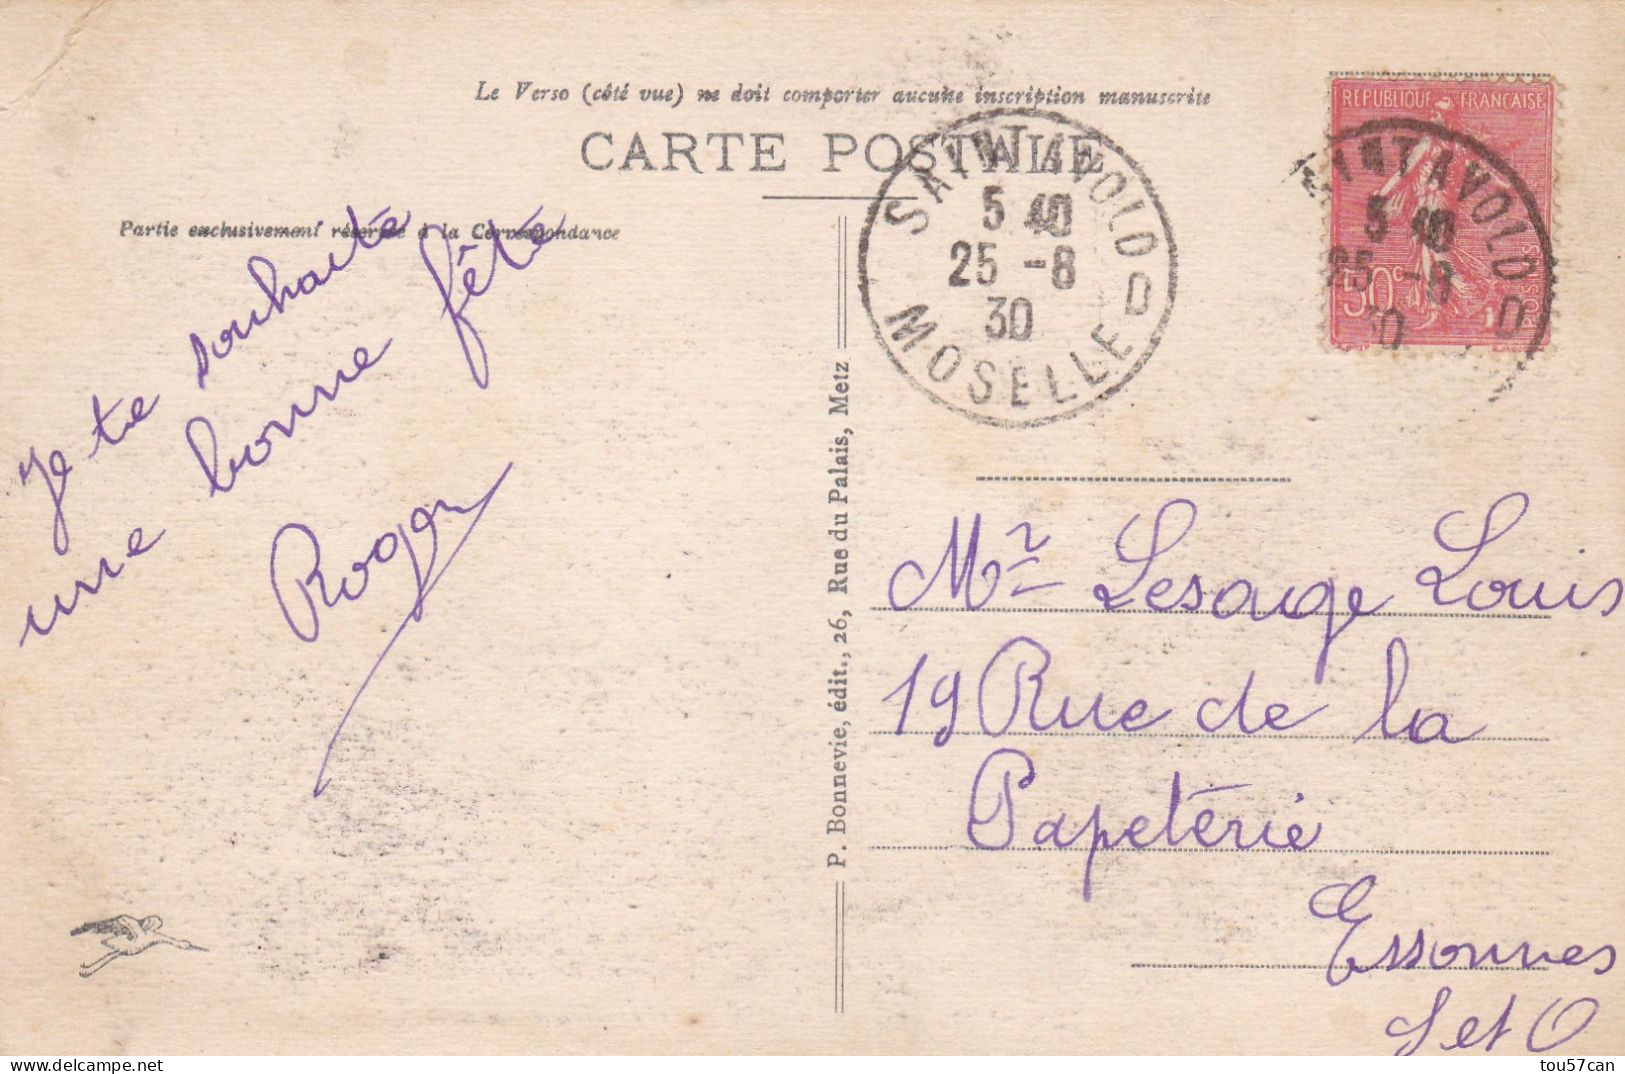 Le Verso (côté vue) ne doit comporter aucune inscription manuscrite
CARTE POSTALE
Partie exclusivement réservée à la Correspondance
Je te souhaite
une bonne fête
Roger
P. Bonnevie, édit., 26, Rue du Palais, Metz
SAINT AVOLD
5 40
25 -8
30
MOSELLE
REPUBLIQUE FRANÇAISE
50c
POSTES
INT AVOLD
5 40
25 -8
30
Mr Lesage Louis
19 Rue de la
Papetérie
Essonnes
S et O
tou57can